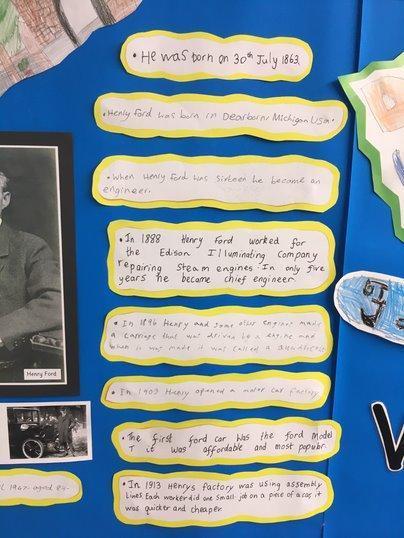 • He was born on 30th July 1863.
• Henry Ford was born in Dearborn, Michigan USA.
• When Henry Ford was sixteen he became an
engineer.
• In 1888 Henry Ford worked for
the Edison Illuminating Company
repairing Steam engines. In only five
years he became chief engineer
• In 1896 Henry and some other engines made
a carriage that was driven by a engine and
when it was made it was called a
• In 1903 Henry opened a motor car factory.
• The first ford car was the ford Model
T it was affordable and most popular.
• In 1913 Henrys factory was using assembly
lines. Each worker did one small job on a piece of a car, it
was quicker and cheaper
Henry Ford
1947 aged 84.
W